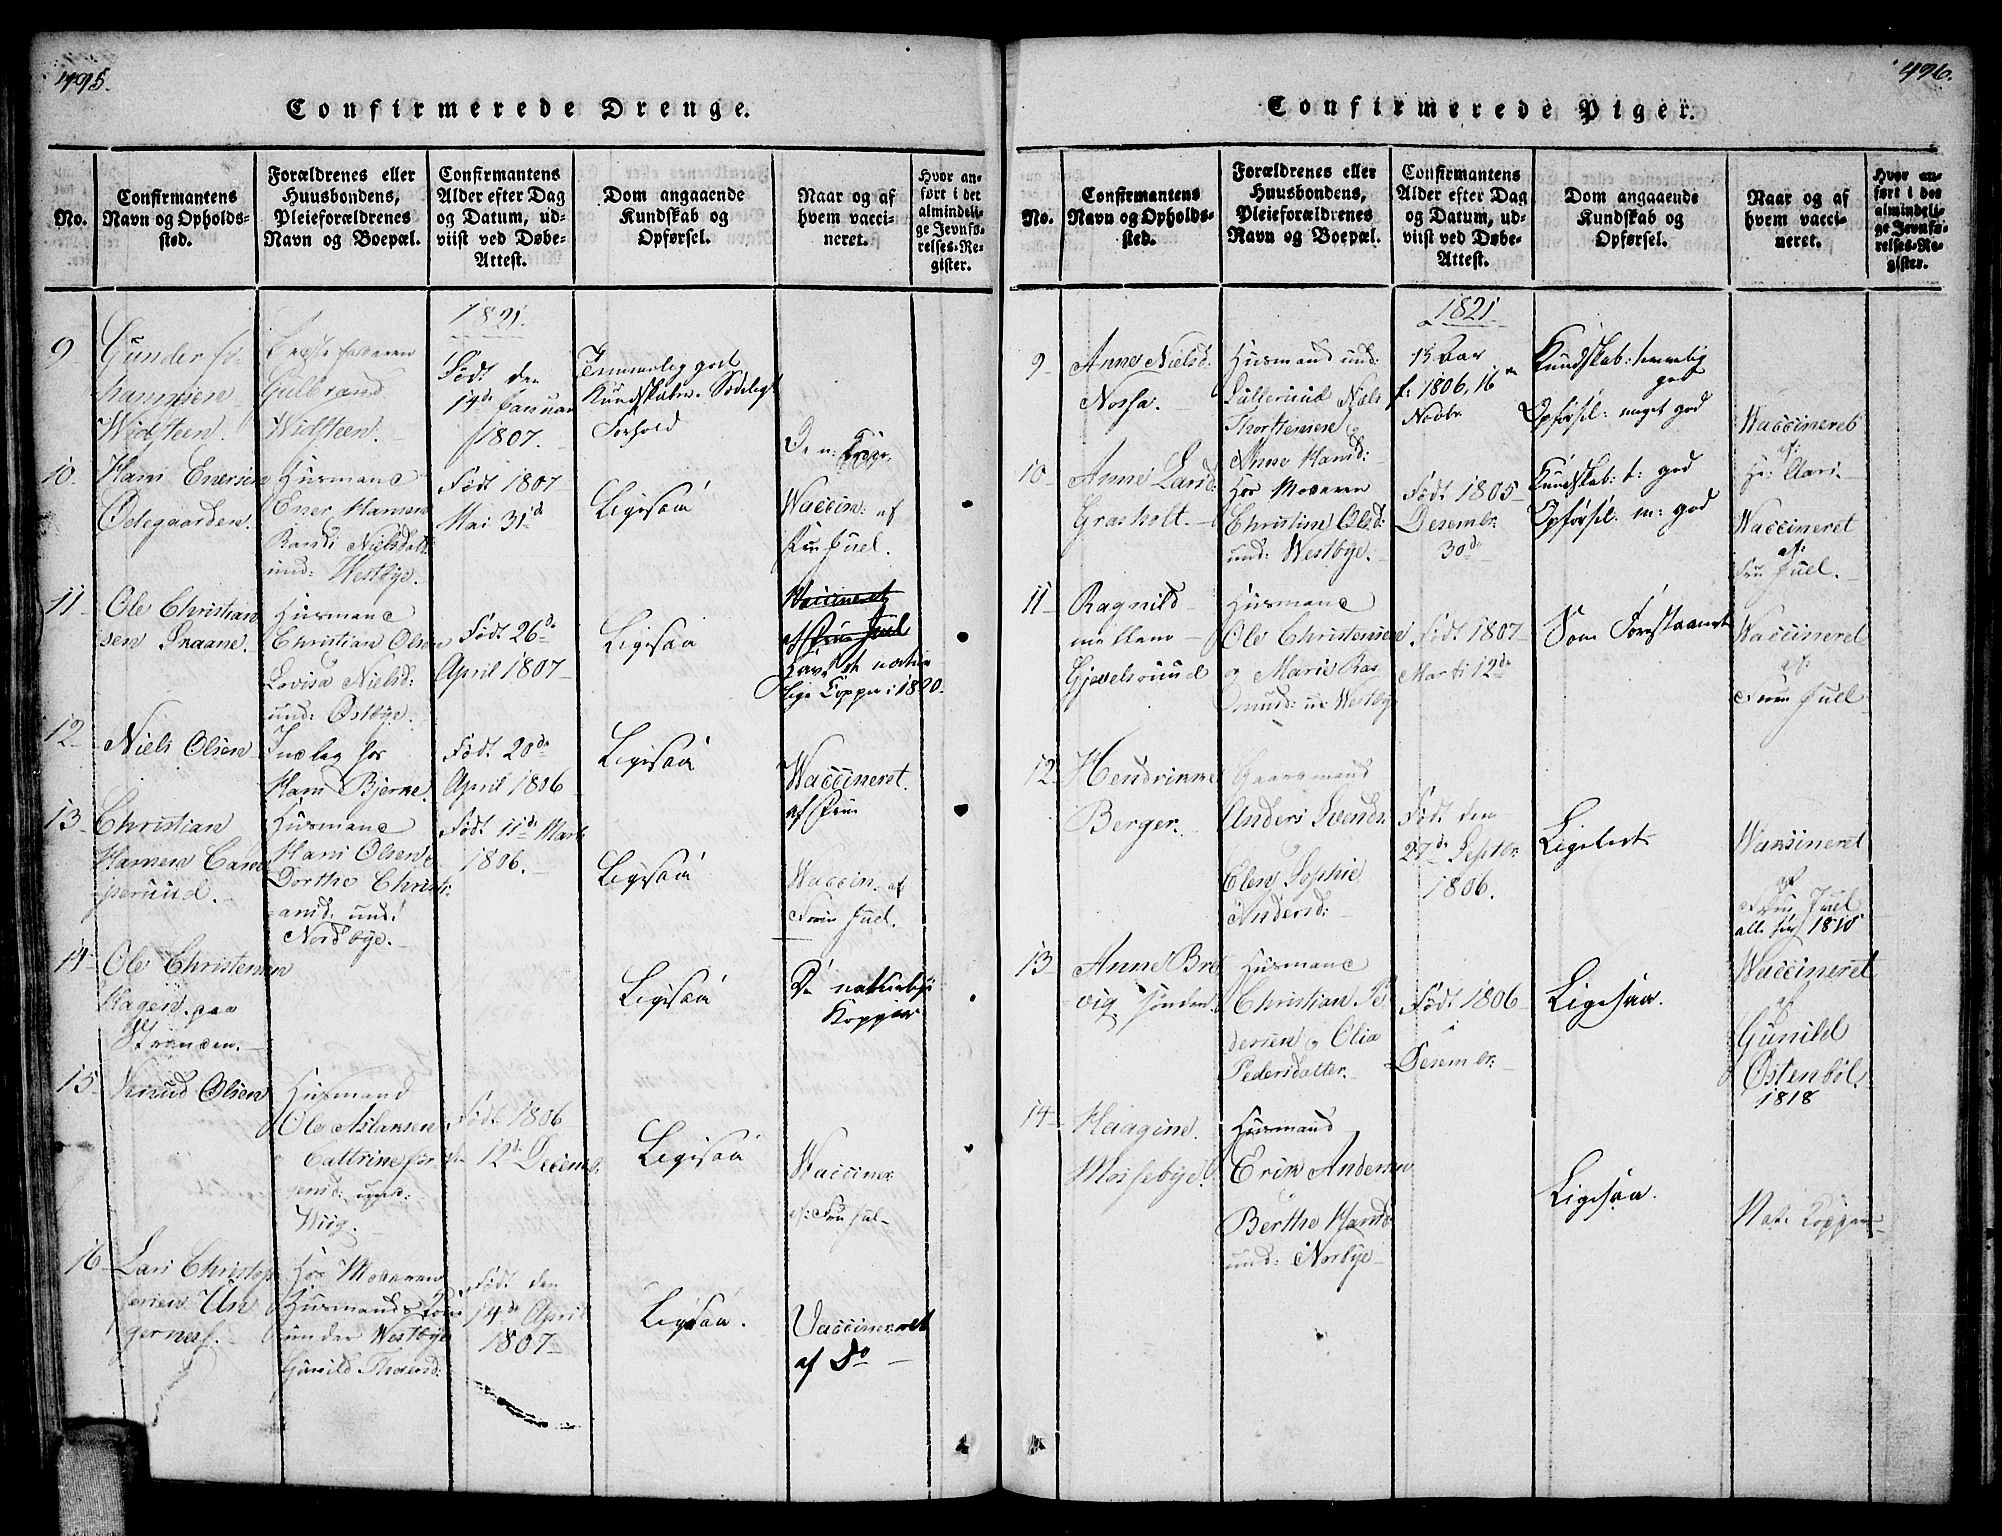 495.
Confirmerede Drenge.
No.
Confirmantens
Navn og Opholds-
sted.
Forældrenes eller
Huusbondens,
Pleieforældrenes
Navn og Boepæl.
Confirmantens
Alder efter Dag
og Datum, ud-
viist ved Døbe-
Attest.
Dom angaaende
Kundskab og
Opførsel.
Naar og af
hvem vacci-
neret.
Hvor an-
ført i det
almindeli-
ge Jevnfø-
relses-Re-
gister.
1821.
9
Gunder Jo-
hannesen
Widsteen.
Gulbrand
Widsteen.
Født den
14de Januar
1807.
Temmelig god
Kundskaber. Sædeligt
Forhold
10.
Hans Enersen
Ødegaarden.
Husmand
Ener Hansen
Randi Nielsdatt
und: Westbye.
Født 1807
Mai 31d
Ligesaa
Vaccin: af
Fru Juel.
11
Ole Christian
sen Snaane.
Husmand
Christian Olsen
Lovisa Nielsd:
und: Østbye.
Født 26de
April 1807
Ligesaa
Vaccineret
af Frue Juel
havt de natur
lige Kopper i 1820
12
Niels Olsen
Inderst hos
Hans Bjerke.
Født 20de
April 1806
Ligesaa
Vaccineret
af Frue
13
Christian
Hansen Cam
perud.
Husmand
Hans Olsen
Dorthe Christi
ansd: und:
Nordbye.
Født 11de Marti
1806.
Ligesaa
Vaccin. af
Frue Juel.
14
Ole Christensen
Hagen paa
Stranden.
Ligesaa
De naturlige
Kopper
15
Knud Olsen
Husmand
Ole Aslaksen
Cattrine Jør
gensd: und:
Wiig.
Født 1806
12de Decemb.
Ligesaa
Vacciner
af: Fru Jul
16
Lars Christop
hersen Un
gernes.
Hos Moderen
Husmands Koni
under Westbye
Gunild Thoresd:
Født den
14de April
1807
Ligesaa.
Vaccineret
af Do
496.
Confirmerede Piger.
No.
Confirmantens
Navn og Opholds-
sted.
Forældrenes eller
Huusbondens,
Pleieforældrenes
Navn og Boepæl.
Confirmantens
Alder efter Dag
og Datum, ud-
viist ved Døbe-
Attest.
Dom angaaende
Kundskab og
Opførsel.
Naar og af
hvem vacci-
neret.
Hvor an-
ført i det
almindeli-
ge Jevnfø-
relses-Re-
gister.
1821
9
Anne Nielsd.
Nossa.
Husmand und:
Sætterud Niels
Thorstensen
Anne Hansd:
15 Aar
f: 1806, 16
Novbr
Kundskab: temelig
god
Opførsel: meget god
Vaccineret
af
Hr: Clari.
10
Anne Larsd:
Grasholt.
Hos Moderen
Christine Olsd:
und: Westbye.
Født 1805
Desembr
30de
Kundskab: t: god
Opførsel: m: god
Vaccineret
af:
Fru Juel.
11
Ragnild
mellem
Gjedelsruud
Husmand
Ole Christensen
og Marie Ras
musd: u: Westby
Født 1807
Marti 12de
Som Forestaaende
Vaccineret
af:
Frue Juel
12
Hendrikke
Berger.
Gaardmand
Anders Svends.
Elen Sophie
Andersd:
Født den
27de Septbr.
1806.
Ligeledes
Vaksineret
af
Frue Juel
1810
13
Anne Bre
vig Sønden
Husmand
Christian Pe
dersen og Olia
Pedersdatter
Født 1806
i
Desembr.
Ligesaa.
Vaccineret
af
Gunild
Østenbøl.
1818
14
Haagine
Mossebye.
Husmand
Erik Andersen
og
Berthe Hansd
und: Norbye
Ligesaa.
Nat: Kopper